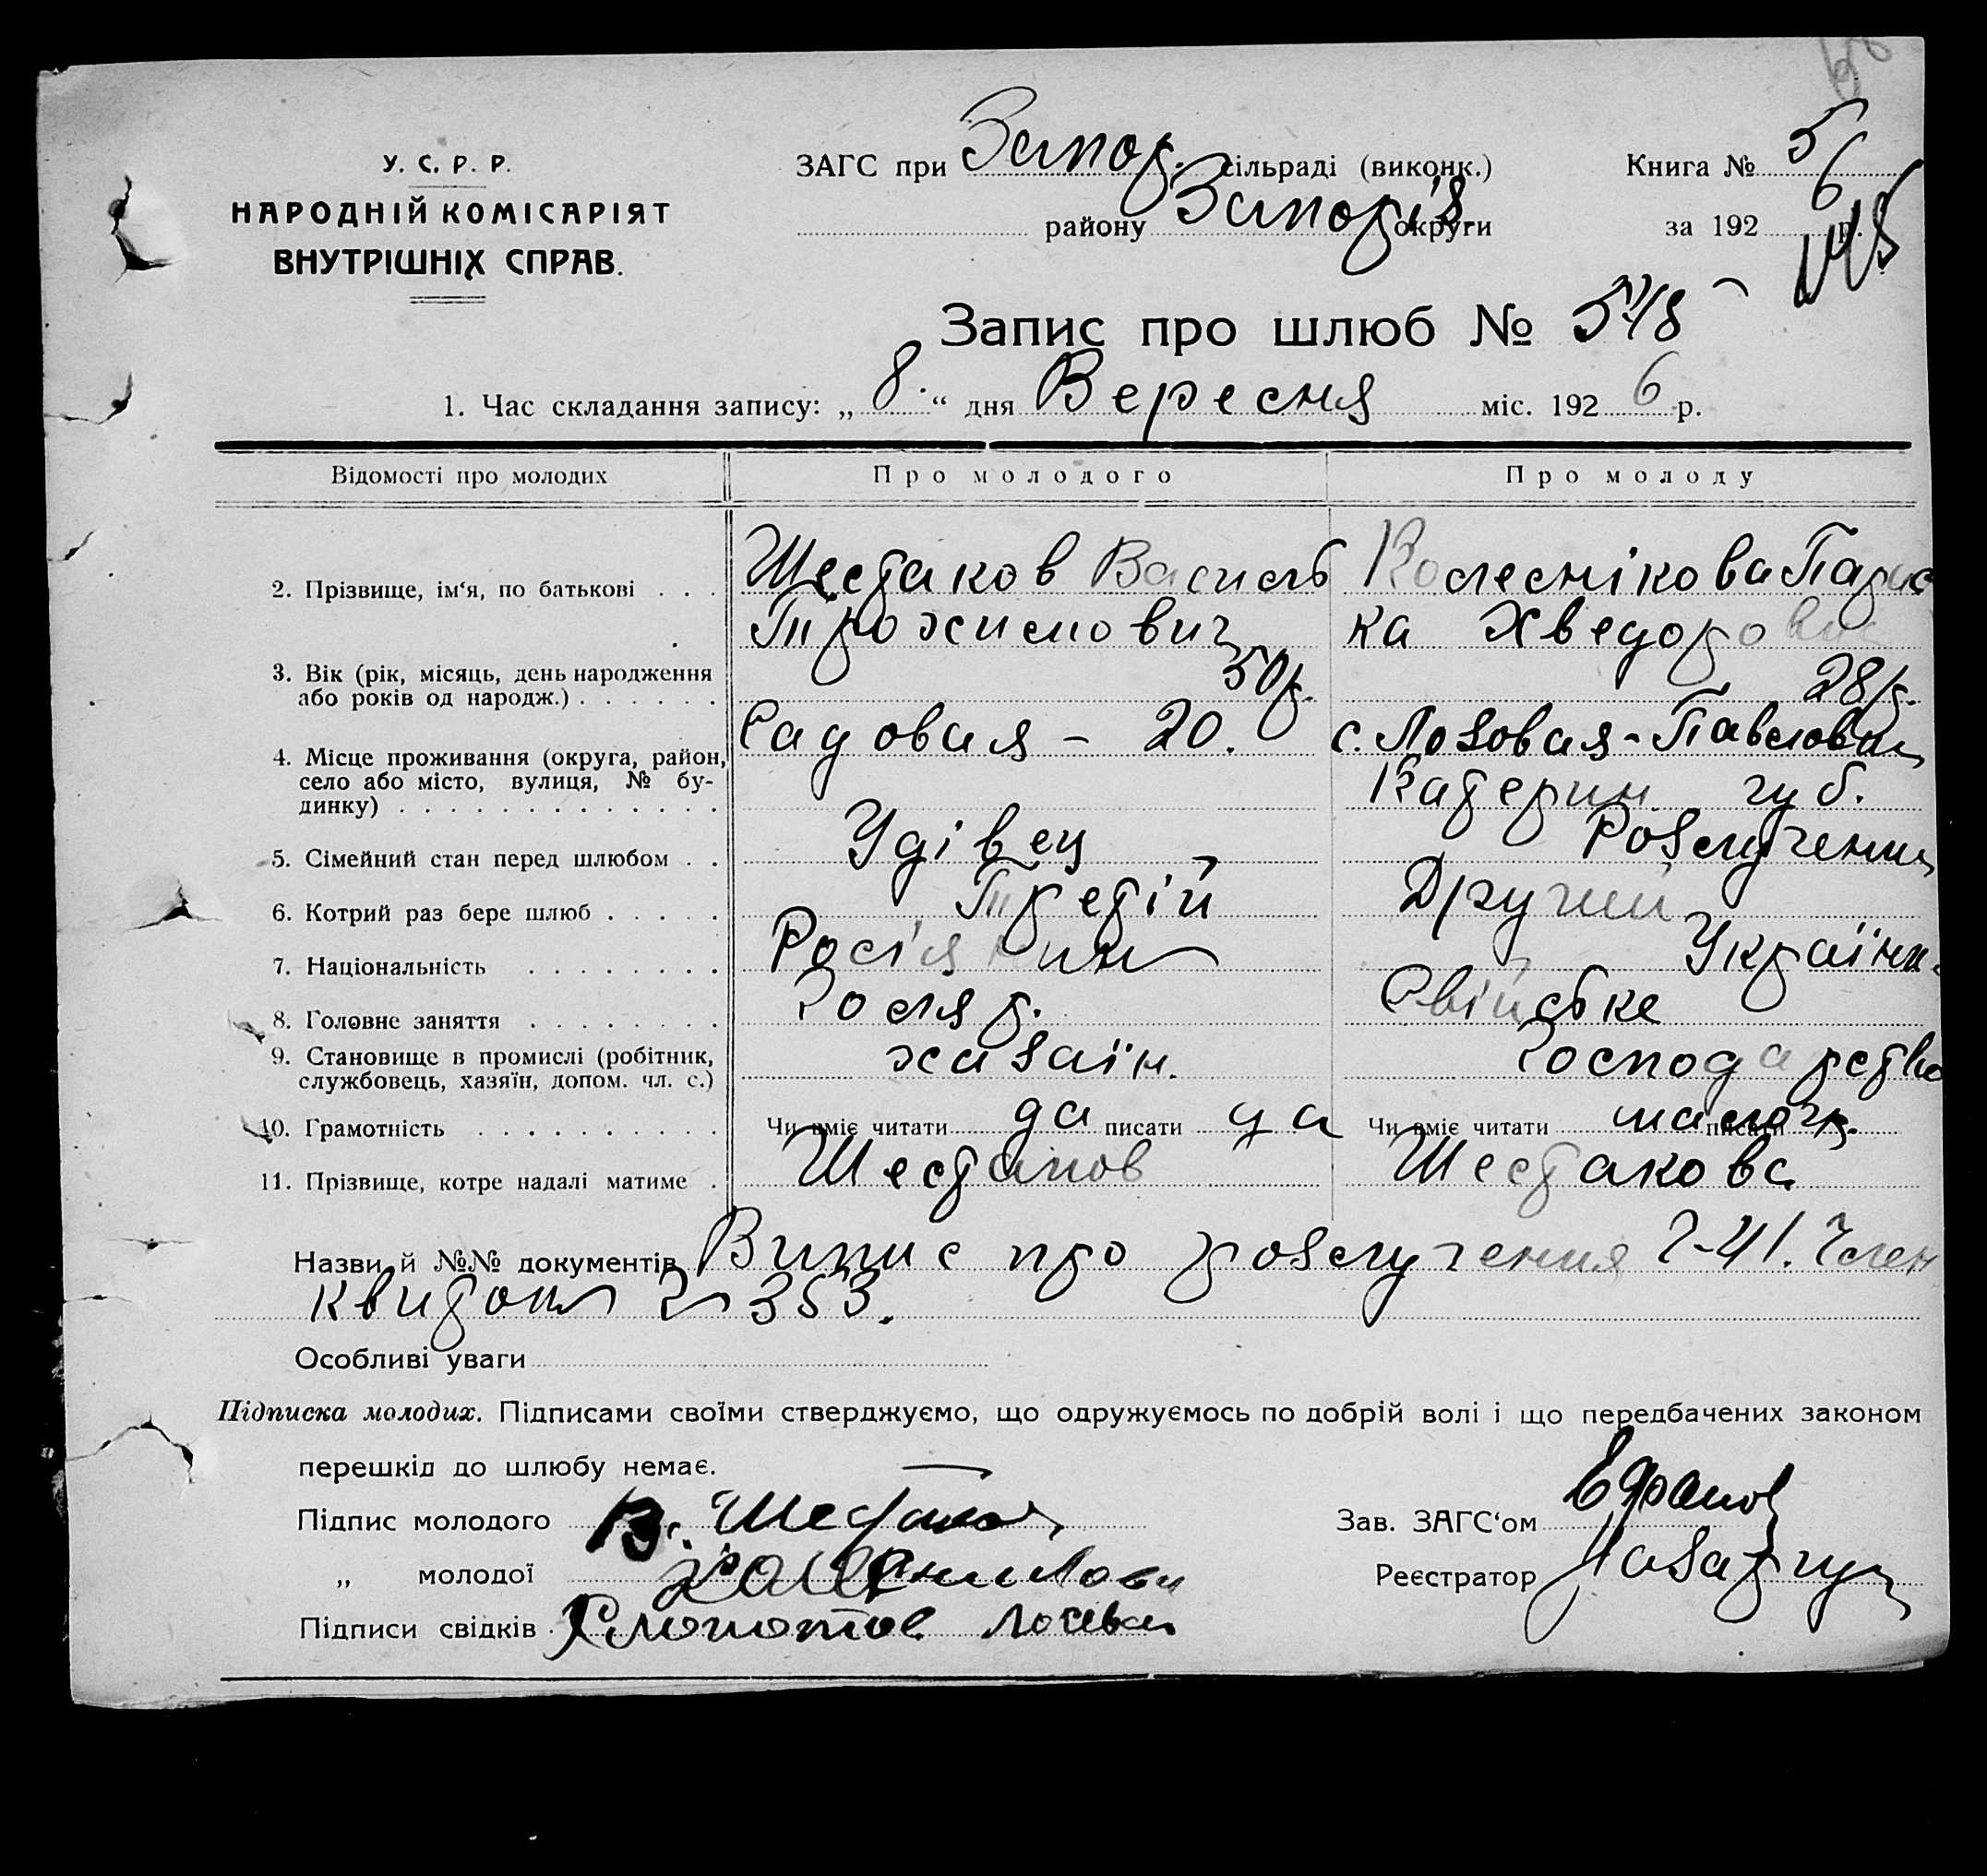 У. С. Р. Р.
НАРОДНІЙ КОМІСАРІЯТ
ВНУТРІШНІХ СПРАВ.
ЗАГС при Запор. сільраді (виконк.)
району Запоріз. округи
Книга № 5
за 192 6 р.
145
Запис про шлюб № 548
1. Час складання запису: „ 8. “ дня Вересня міс. 192 6 р.
Відомості про молодих Про молодого Про молоду
2. Прізвище, ім‘я, по батькові . . . Шестаков Василь Колеснікова Парас
Трохимович ка Хведоровна
3. Вік (рік, місяць, день народження
або років од народж.) . . . . . . 50р. 28р.
4. Місце проживання (округа, район, Садовая - 20. с. Лозовая-Павловка
село або місто, вулиця, № бу- Катерин. губ.
динку) . . . . . . . . . . . . .
5. Сімейний стан перед шлюбом . . Удівец Розлучениц
6. Котрий раз бере шлюб . . . . . Третій Другий
7. Національність . . . . . . . . Росіянин Українк.
8. Головне заняття . . . . . . . . Столяр. Свійське
9. Становище в промислі (робітник, хазаїн. господарство
службовець, хазяїн, допом. чл. с.)
10. Грамотність . . . . . . . . . . Чи вміє читати да писати да Чи вміє читати малогр. писати
11. Прізвище, котре надалі матиме . Шестаков Шестакова
Назви й №№ документів Випис про розлучення 2-41. Член
квиток 353.
Особливі уваги
Підписка молодих. Підписами своїми стверджуємо, що одружуємось по добрій волі і що передбачених законом
перешкід до шлюбу немає.
Підпис молодого В. Шестаков Зав. ЗАГС‘ом
„ молодої Реєстратор
Підписи свідків